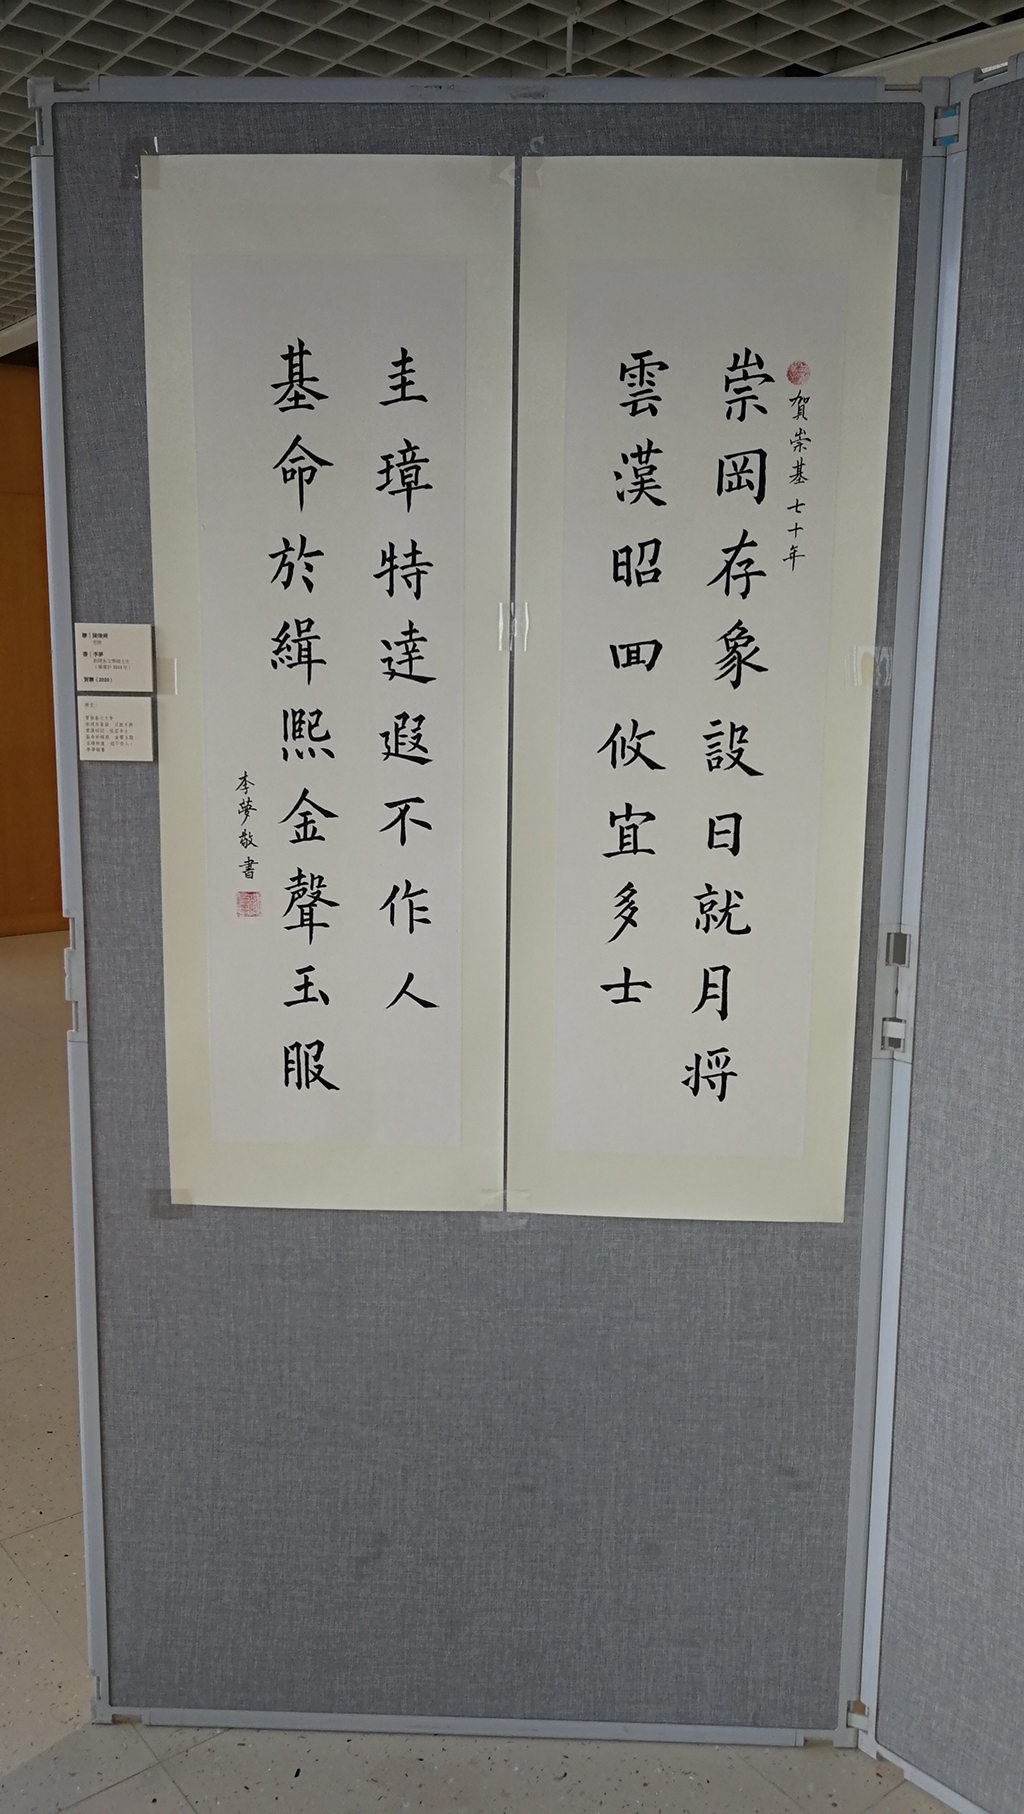 賀崇基七十年
崇岡存象設日就月将
雲漢昭囬攸宜多士
基命於緝熙金聲玉服
圭璋特達遐不作人
李夢敬書
聯｜陳煒舜
書｜李夢
賀聯（2020）